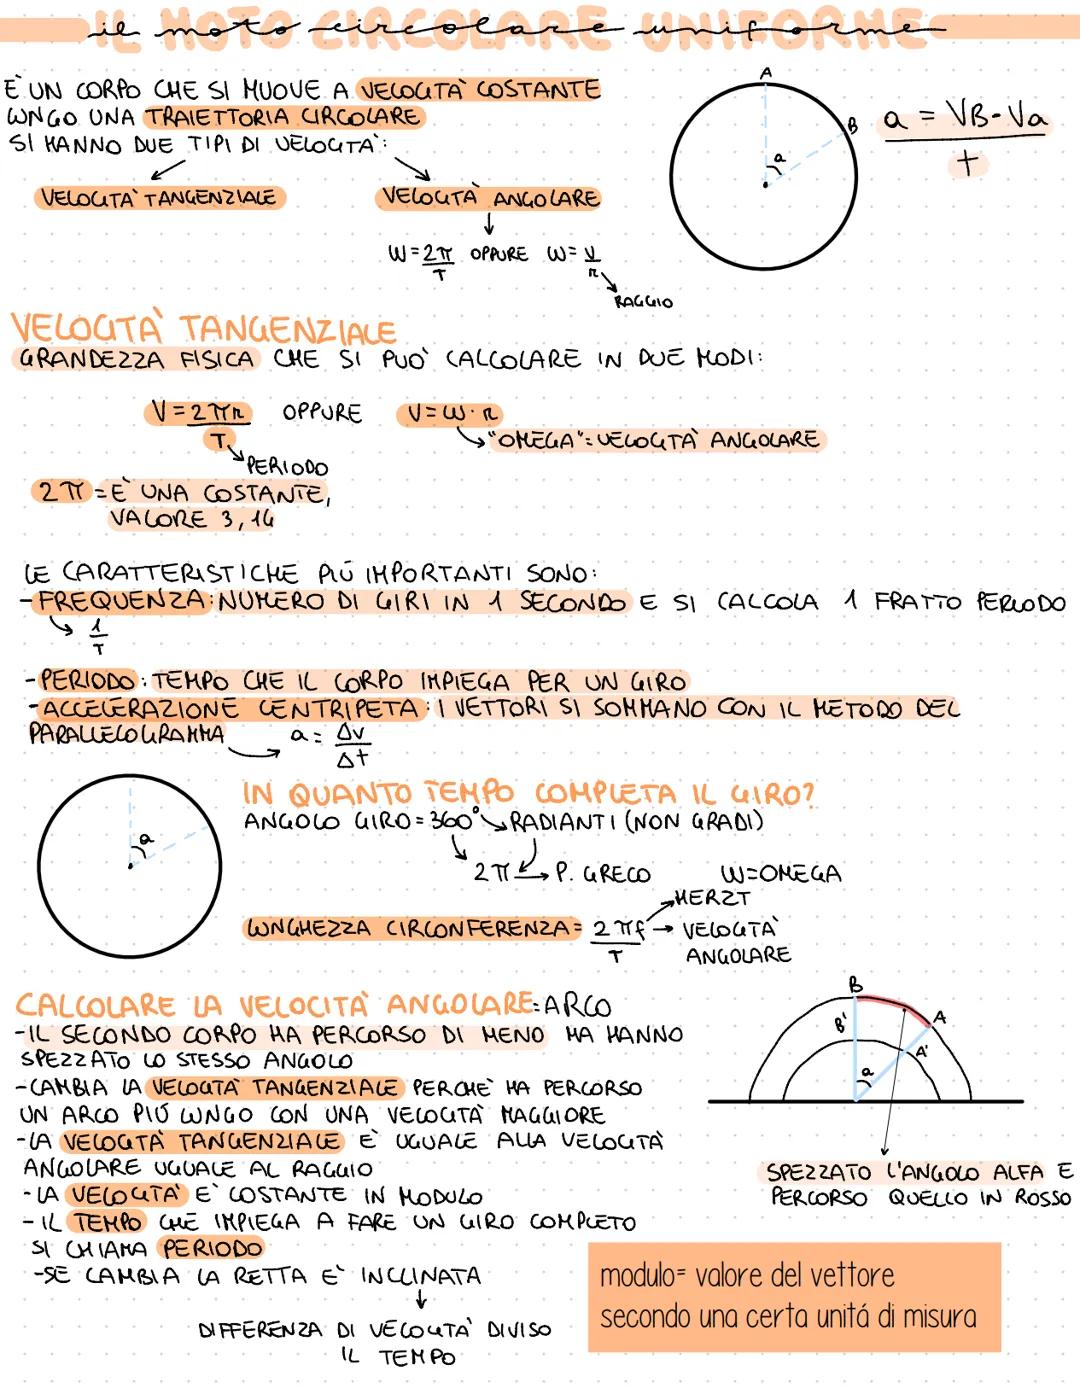 IL MOTO CIRCOLARE UNIFORME
il moto circolare uniforme
E' UN CORPO CHE SI MUOVE A VELOCITÀ COSTANTE
LUNGO UNA TRAIETTORIA CIRCOLARE
SI HANNO DUE TIPI DI VELOCITA':
VELOCITA' TANGENZIALE
VELOCITÀ ANGOLARE
W=2π/T OPPURE W=V/r
RAGGIO
A
B
a
a = VB-Va
t
VELOCITA' TANGENZIALE
GRANDEZZA FISICA CHE SI PUO' CALCOLARE IN DUE MODI:
V=2πr/T OPPURE V=W·r
"OMEGA"=VELOCITA' ANGOLARE
PERIODO
2π=E' UNA COSTANTE,
VALORE 3,14
LE CARATTERISTICHE PIÚ IMPORTANTI SONO:
-FREQUENZA:NUMERO DI GIRI IN 1 SECONDO E SI CALCOLA 1 FRATTO PERIODO
1/T
-PERIODO: TEMPO CHE IL CORPO IMPIEGA PER UN GIRO
-ACCELERAZIONE CENTRIPETA: I VETTORI SI SOMMANO CON IL METODO DEL
PARALLELOGRAMMA
a= Δv/Δt
a
IN QUANTO TEMPO COMPLETA IL GIRO?
ANGOLO GIRO=360° RADIANTI (NON GRADI)
2π P. GRECO W=OMEGA
HERZT
LUNGHEZZA CIRCONFERENZA= 2πf/T VELOCITA'
ANGOLARE
CALCOLARE LA VELOCITÀ ANGOLARE=ARCO
-IL SECONDO CORPO HA PERCORSO DI MENO MA HANNO
SPEZZATO LO STESSO ANGOLO
-CAMBIA LA VELOCITÀ TANGENZIALE PERCHE' HA PERCORSO
UN ARCO PIÚ LUNGO CON UNA VELOCITÀ MAGGIORE
-LA VELOCITÀ TANGENZIALE E' UGUALE ALLA VELOCITÀ
ANGOLARE UGUALE AL RAGGIO
-LA VELOCITA' E' COSTANTE IN MODULO
-IL TEMPO CHE IMPIEGA A FARE UN GIRO COMPLETO
SI CHIAMA PERIODO
-SE CAMBIA LA RETTA E' INCLINATA
DIFFERENZA DI VELOCITA' DIVISO
IL TEMPO
B
B'
A
A'
a
SPEZZATO L'ANGOLO ALFA E
PERCORSO QUELLO IN ROSSO
modulo= valore del vettore
secondo una certa unitá di misura